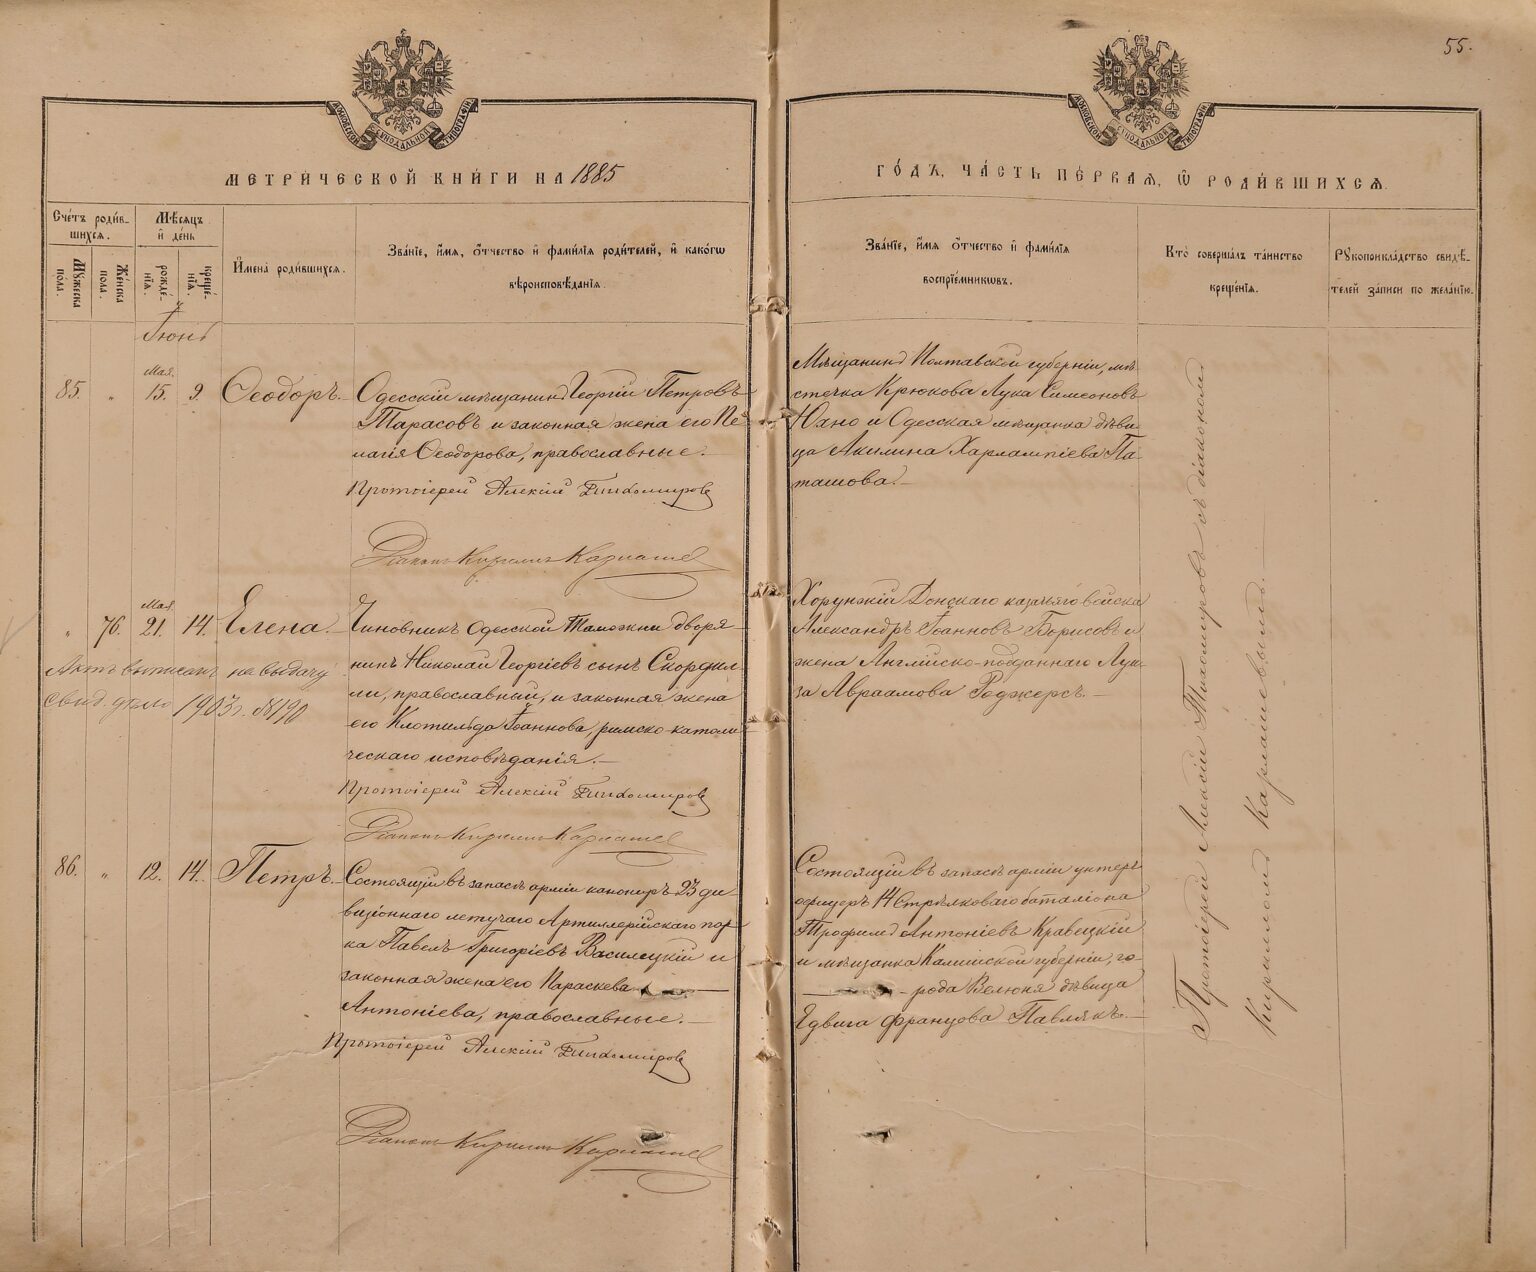 55.
МОСКОВСКОЙ СѴНОДАЛЬНОЙ ТИПОГРАФІИ
МОСКОВСКОЙ СѴНОДАЛЬНОЙ ТИПОГРАФІИ
МЕТРИ́ЧЕСКОЙ КНИ́ГИ НА 1885
ГО́ДЪ, ЧА́СТЬ ПЕ́РВАЯ, Ѿ РОДИ́ВШИХСѦ.
Сче́тъ роди́в-
шихся.
Мѣ́сяцъ
и҆ де́нь
Мꙋ́жеска
по́ла.
Же́нска
по́ла.
рожде́-
нїѧ.
креще́-
нїѧ.
И҆мена̀ роди́вшихся.
Зва́нїе, и҆́мѧ, ѻ҆́тчество и҆ фами́лїѧ роди́телей, и҆ како́гѡ
вѣроисповѣ́данїѧ.
Зва́нїе, и҆́мѧ ѻ҆́тчество и҆ фами́лїѧ
воспрїе́мникѡвъ.
Кто̀ соверша́лъ та́инство
креще́нїѧ.
Рꙋкоприкла́дство свидѣ́-
телей за́писи по жела́нїю.
Іюнь
Мая
85. „ 15. 9. Ѳеодоръ.
Одесскій мѣщанинъ Георгій Петровъ
Тарасовъ и законная жена его Пе-
лагія Ѳеодорова, православные.
Протоіерей Алексій Тихомировъ
Діаконъ Кириллъ Карпаше
Мѣщанинъ Полтавской губерніи, мѣ-
стечка Крюкова Лука Симеоновъ
Юхно и Одесская мѣщанка дѣви-
ца Акилина Харлампіева Па-
ташова.
Мая
„ 76. 21. 14. Елена.
Актъ выписанъ на выдачу
свид. дѣло 1903г. №190
Чиновникъ Одесской Таможни дворя-
нинъ Николай Георгіевъ сынъ Скордил-
ли, православный, и законная жена
его Клотильда Іоаннова, римско-католи-
ческаго исповѣданія.
Протоіерей Алексій Тихомировъ
Діаконъ Кириллъ Карпаше
Хорунжій Донскаго казачяго войска
Александръ Іоанновъ Борисовъ и
жена Англійско-подданнаго Луи-
за Авраамова Роджерсъ.
86. „ 12. 14. Петръ.
Состоящій въ запасѣ арміи канониръ 23 ди-
визіоннаго летучаго Артиллерійскаго пар-
ка Павелъ Григоріевъ Василецкій и
законная жена его Параскева
Антоніева, православные.
Протоіерей Алексій Тихомировъ
Діаконъ Кириллъ Карпаше
Состоящій въ запасѣ арміи унтеръ
офицеръ 14 Стрѣлковаго баталіона
Трофимъ Антоніевъ Кравецкій
и мѣщанка Калишской губерніи, го-
рода Велюня дѣвица
Ядвига Францова Павлякъ.
Протоіерей Алексій Тихомировъ съ діакономъ
Кирилломъ Карпашевымъ.